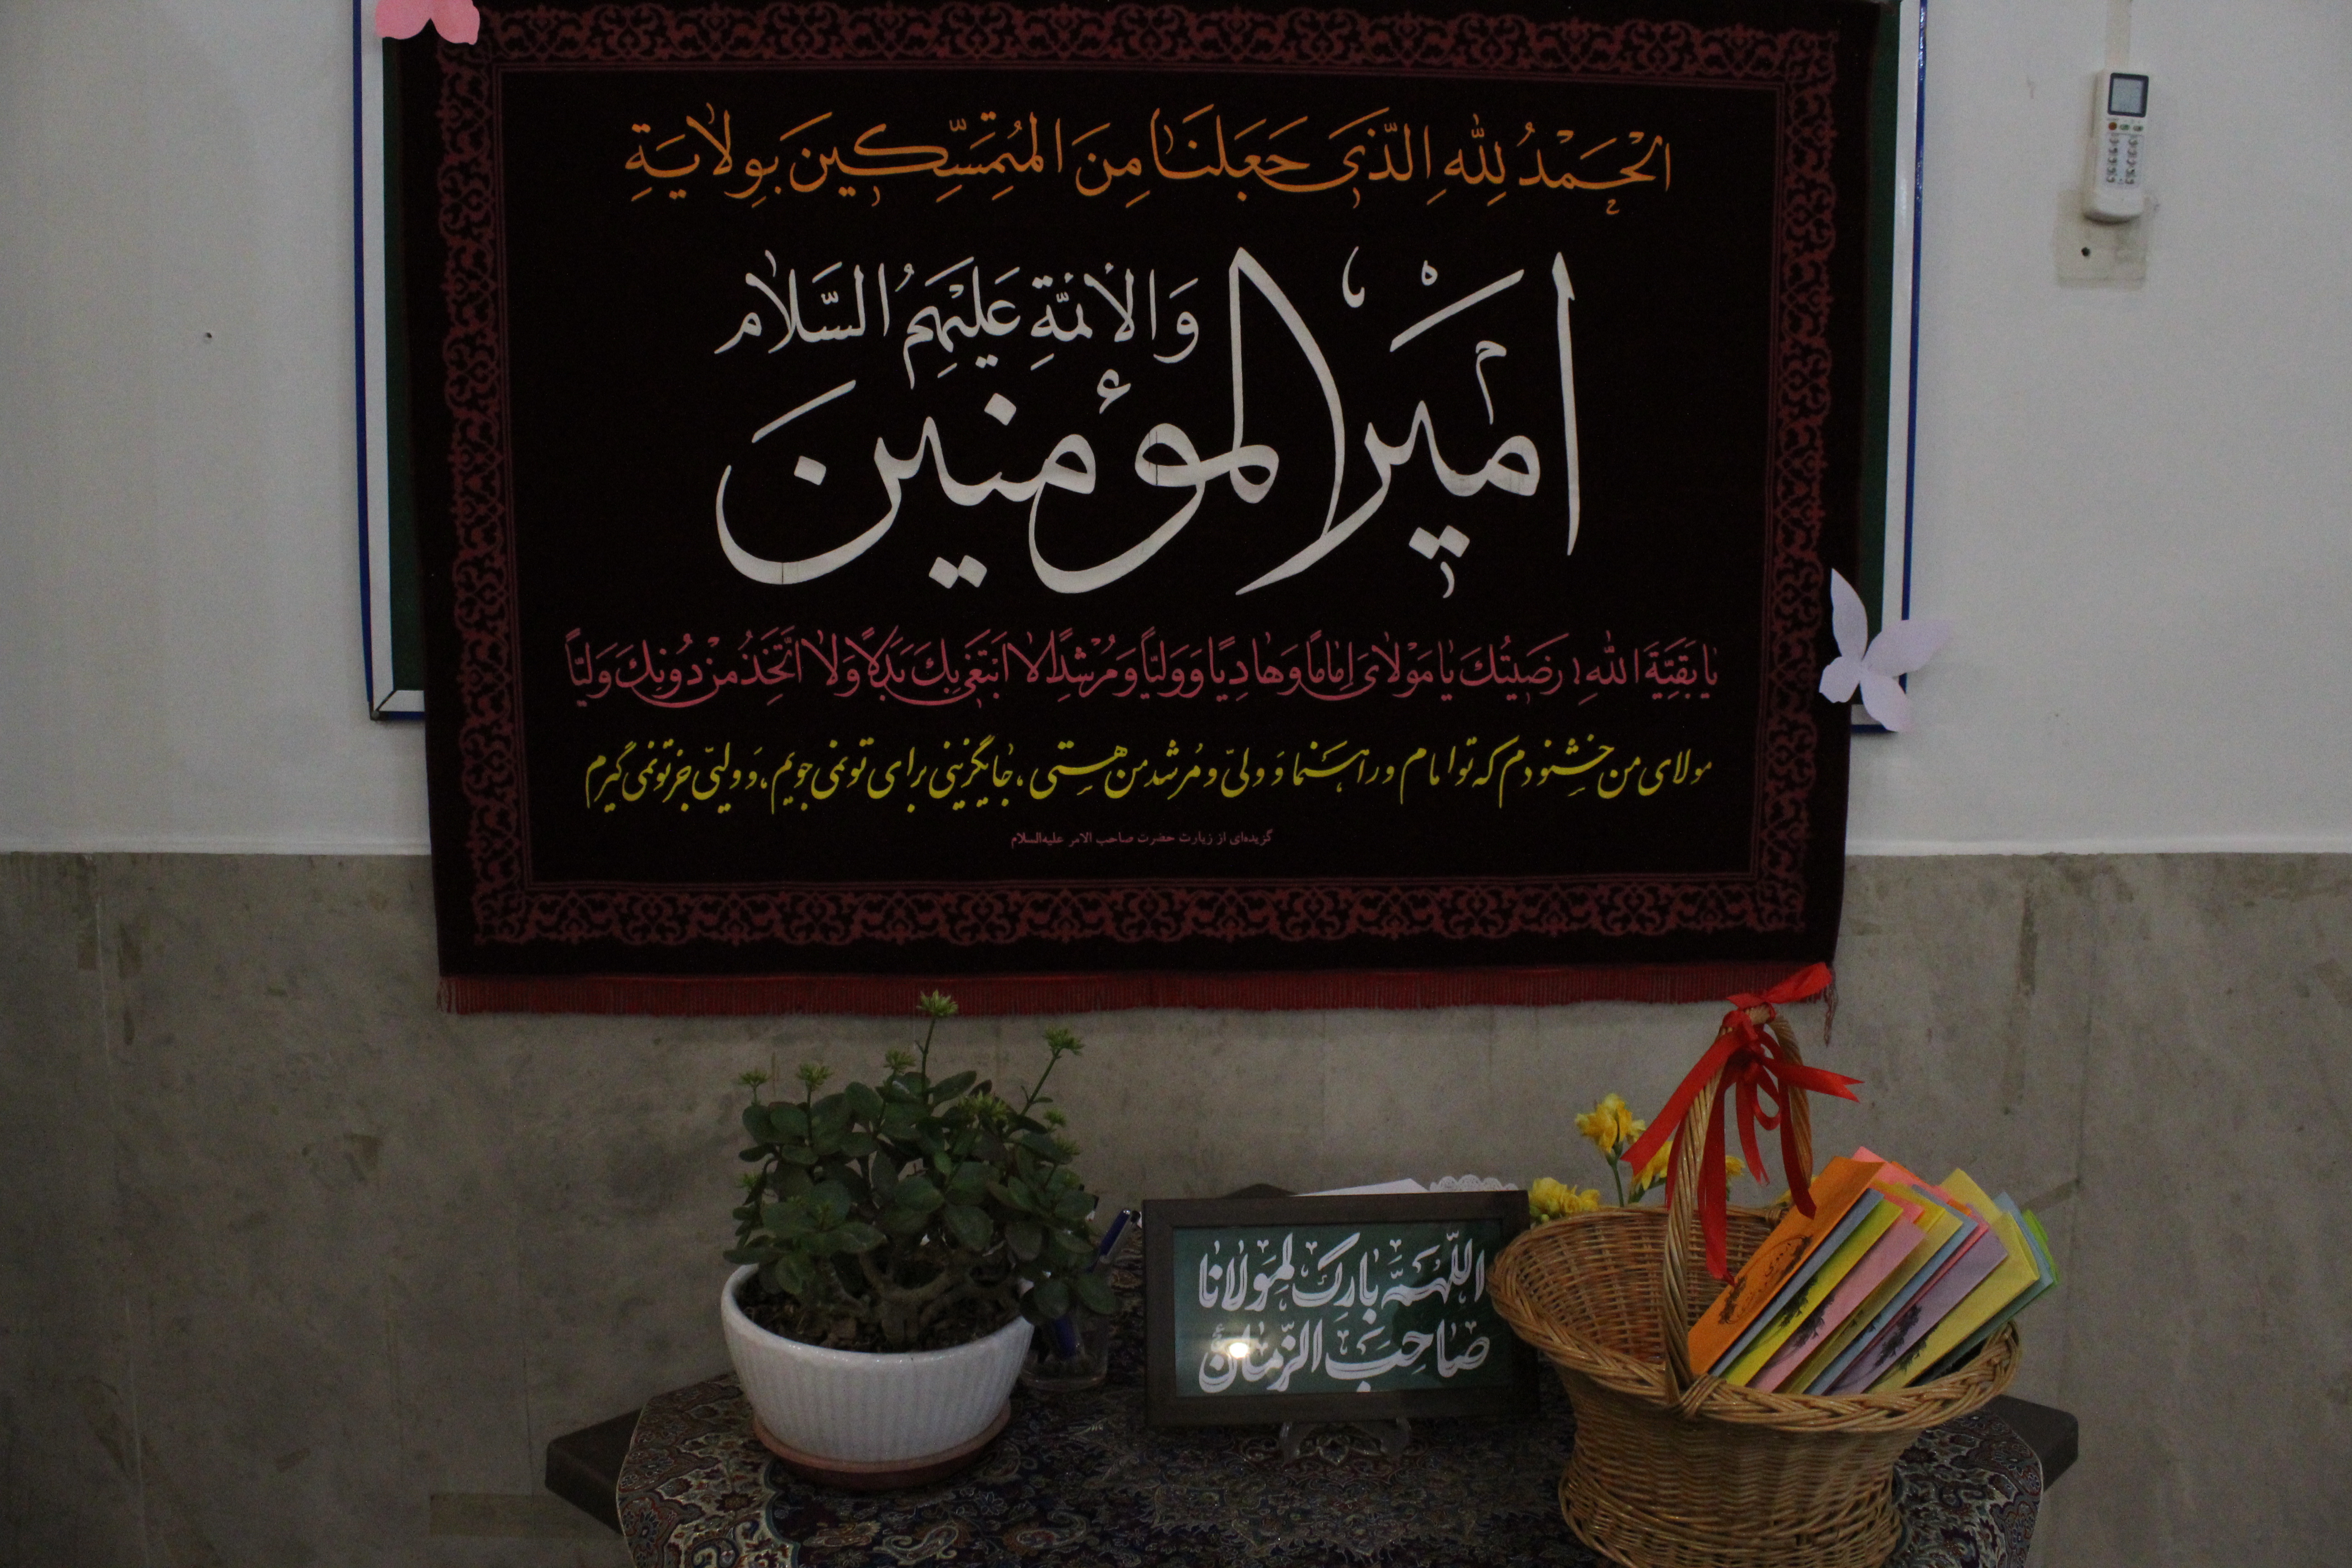 اَلْحَمْدُ لِلّٰهِ الَّذی جَعَلَنٰا مِنَ الْمُتَمَسِّکینَ بِوِلایَةِ
اَمیْرِالْمُؤمِنینَ
وَالأئمَّةِ عَلَیْهِمُ السَّلٰام
یٰا بَقِیَّةَ اللهِ رَضیتُكَ یٰا مَوْلٰایَ اِمٰاماً وَ هٰادِیًا وَ وَلیّاً وَ مُرْشِدًا لٰا اَبْتَغی بِكَ بَدَلاً وَلٰا اَتَّخِذُ مِنْ دُونِكَ وَلیّاً
مولای من خشنودم که تو امام و راهنما و ولیّ و مُرشد من هستی، جایگزینی برای تو نمی جویم، و ولیّی جز تو نمی گیرم
گزیده‌ای از زیارت حضرت صاحب الامر علیه‌السلام
اللّهُمَّ بارِك لِمَولانا
صاحِبَ الزَّمان